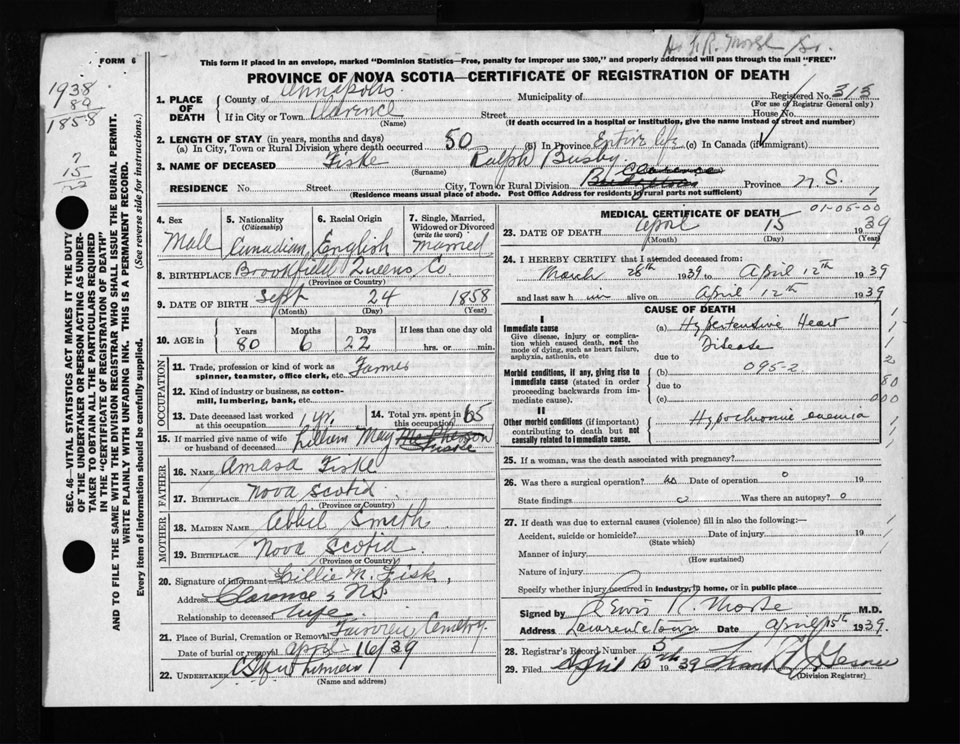 Dr. L. R. Morse Sr.
FORM 6
This form if placed in an envelope, marked "Dominion Statistics—Free, penalty for improper use $300," and properly addressed will pass through the mail "FREE"
PROVINCE OF NOVA SCOTIA—CERTIFICATE OF REGISTRATION OF DEATH
1938
80
1858
7
15
22
SEC. 46—VITAL STATISTICS ACT MAKES IT THE DUTY
OF THE UNDERTAKER OR PERSON ACTING AS UNDER-
TAKER TO OBTAIN ALL THE PARTICULARS REQUIRED
IN THE "CERTIFICATE OF REGISTRATION OF DEATH"
AND TO FILE THE SAME WITH THE DIVISION REGISTRAR WHO SHALL ISSUE THE BURIAL PERMIT.
WRITE PLAINLY WITH UNFADING INK. THIS IS A PERMANENT RECORD.
Every item of information should be carefully supplied. (See reverse side for instructions.)
1. PLACE OF DEATH County of Annapolis Municipality of Registered No. 313
(For use of Registrar General only)
If in City or Town Clarence Street House No.
(Name) (If death occurred in a hospital or institution, give the name instead of street and number)
2. LENGTH OF STAY (in years, months and days)
(a) In City, Town or Rural Division where death occurred 50 (b) In Province Entire life (c) In Canada (if immigrant)
3. NAME OF DECEASED Fiske Ralph Busby
(Surname)
RESIDENCE No. Street City, Town or Rural Division Clarence Province N.S.
(Residence means usual place of abode. Post Office Address for Residents in rural parts not sufficient)
4. Sex Male
5. Nationality (Citizenship) Canadian
6. Racial Origin English
7. Single, Married, Widowed or Divorced (write the word) Married
8. BIRTHPLACE Brookfield Queens Co.
(Province or Country)
9. DATE OF BIRTH Sept 24 1858
(Month) (Day) (Year)
10. AGE in Years 80 Months 6 Days 22 If less than one day old hrs. or min.
OCCUPATION
11. Trade, profession or kind of work as spinner, teamster, office clerk, etc. Farmer
12. Kind of industry or business, as cotton-mill, lumbering, bank, etc.
13. Date deceased last worked at this occupation 1 yr.
14. Total yrs. spent in this occupation 65
15. If married give name of wife or husband of deceased Lilliem May
FATHER
16. NAME Amasa Fiske
17. BIRTHPLACE Nova Scotia
(Province or Country)
MOTHER
18. MAIDEN NAME Abbie Smith
19. BIRTHPLACE Nova Scotia
(Province or Country)
20. Signature of informant Lillie M. Fisk,
Address Clarence NS
Relationship to deceased wife
21. Place of Burial, Cremation or Removal Fairview Cemetery
Date of burial or removal April 16/39
22. UNDERTAKER
(Name and address)
MEDICAL CERTIFICATE OF DEATH 01-05-00
23. DATE OF DEATH April 15 1939
(Month) (Day) (Year)
24. I HEREBY CERTIFY that I attended deceased from:
March 28th 1939 to April 12th 1939
and last saw him alive on April 12th 1939
CAUSE OF DEATH
I
Immediate cause
Give disease, injury or complication which caused death, not the mode of dying, such as heart failure, asphyxia, asthenia, etc
(a) Hypertensive Heart
Disease
due to
Morbid conditions, if any, giving rise to immediate cause (stated in order proceeding backwards from immediate cause).
(b) 095-2
due to
(c)
II
Other morbid conditions (if important) contributing to death but not causally related to immediate cause.
Hypochromic anemia
1
1
1
2
80
000
1
1
1
25. If a woman, was the death associated with pregnancy?
26. Was there a surgical operation? no Date of operation 0 19
State findings 0 Was there an autopsy? 0
27. If death was due to external causes (violence) fill in also the following:—
Accident, suicide or homicide? Date of injury 19
(State which)
Manner of injury
(How sustained)
Nature of injury
Specify whether injury occurred in industry, in home, or in public place
Signed by Lewis R. Morse M.D.
Address Lawrencetown Date April 15th 1939.
28. Registrar's Record Number 5
29. Filed April 1939 Frank
(Division Registrar)